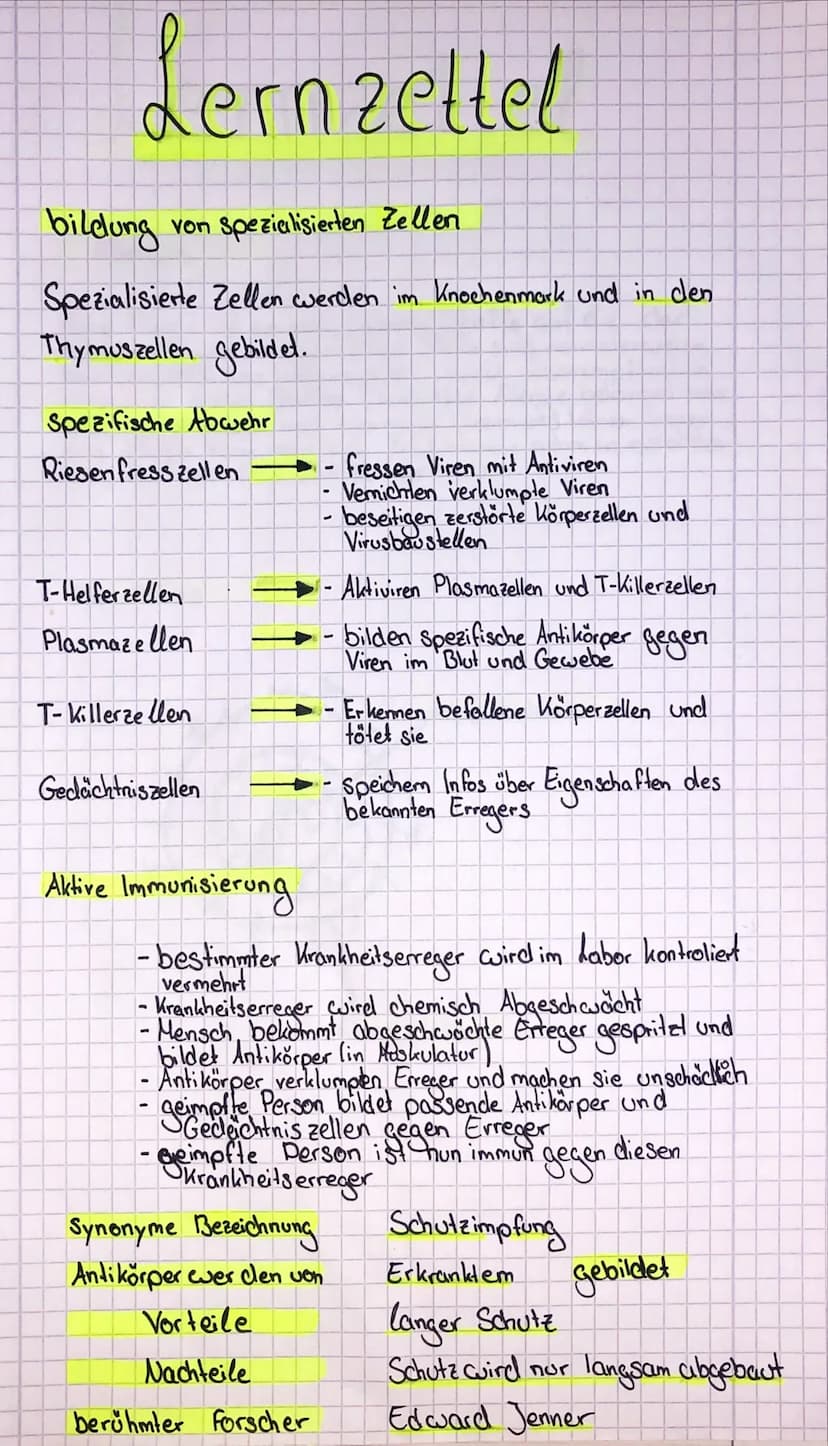 Lernzettel
bildung von spezialisierten Zellen
Spezialisierte Zellen werden im Knochenmark und in den
Thymuszellen gebildet.
Spezifische Abwehr
Riesenfresszellen → - fressen Viren mit Antiviren
- Vernichten verklumpte Viren
- beseitigen zerstörte Körperzellen und
Virusbaustellen
T-Helferzellen → - Aktiviren Plasmazellen und T-Killerzellen
Plasmazellen → - bilden spezifische Antikörper gegen
Viren im Blut und Gewebe
T-Killerzellen → - Erkennen befallene Körperzellen und
tötet sie
Gedächtniszellen → - speichern Infos über Eigenschaften des
bekannten Erregers
Aktive Immunisierung
- bestimmter Krankheitserreger wird im Labor kontroliert
vermehrt
- Krankheitserreger wird chemisch Abgeschwächt
- Mensch bekommt abgeschwächte Erreger gespritzt und
bildet Antikörper (in
- Antikörper verklumpen Erreger und machen sie unschädlich
- geimpfte Person bildet passende Antikörper und
Gedächtniszellen gegen Erreger
- geimpfte Person ist nun immun gegen diesen
Krankheitserreger
Synonyme Bezeichnung Schutzimpfung
Antikörper werden von Erkranktem gebildet
Vorteile langer Schutz
Nachteile Schutz wird nur langsam abgebaut
berühmter Forscher Edward Jenner